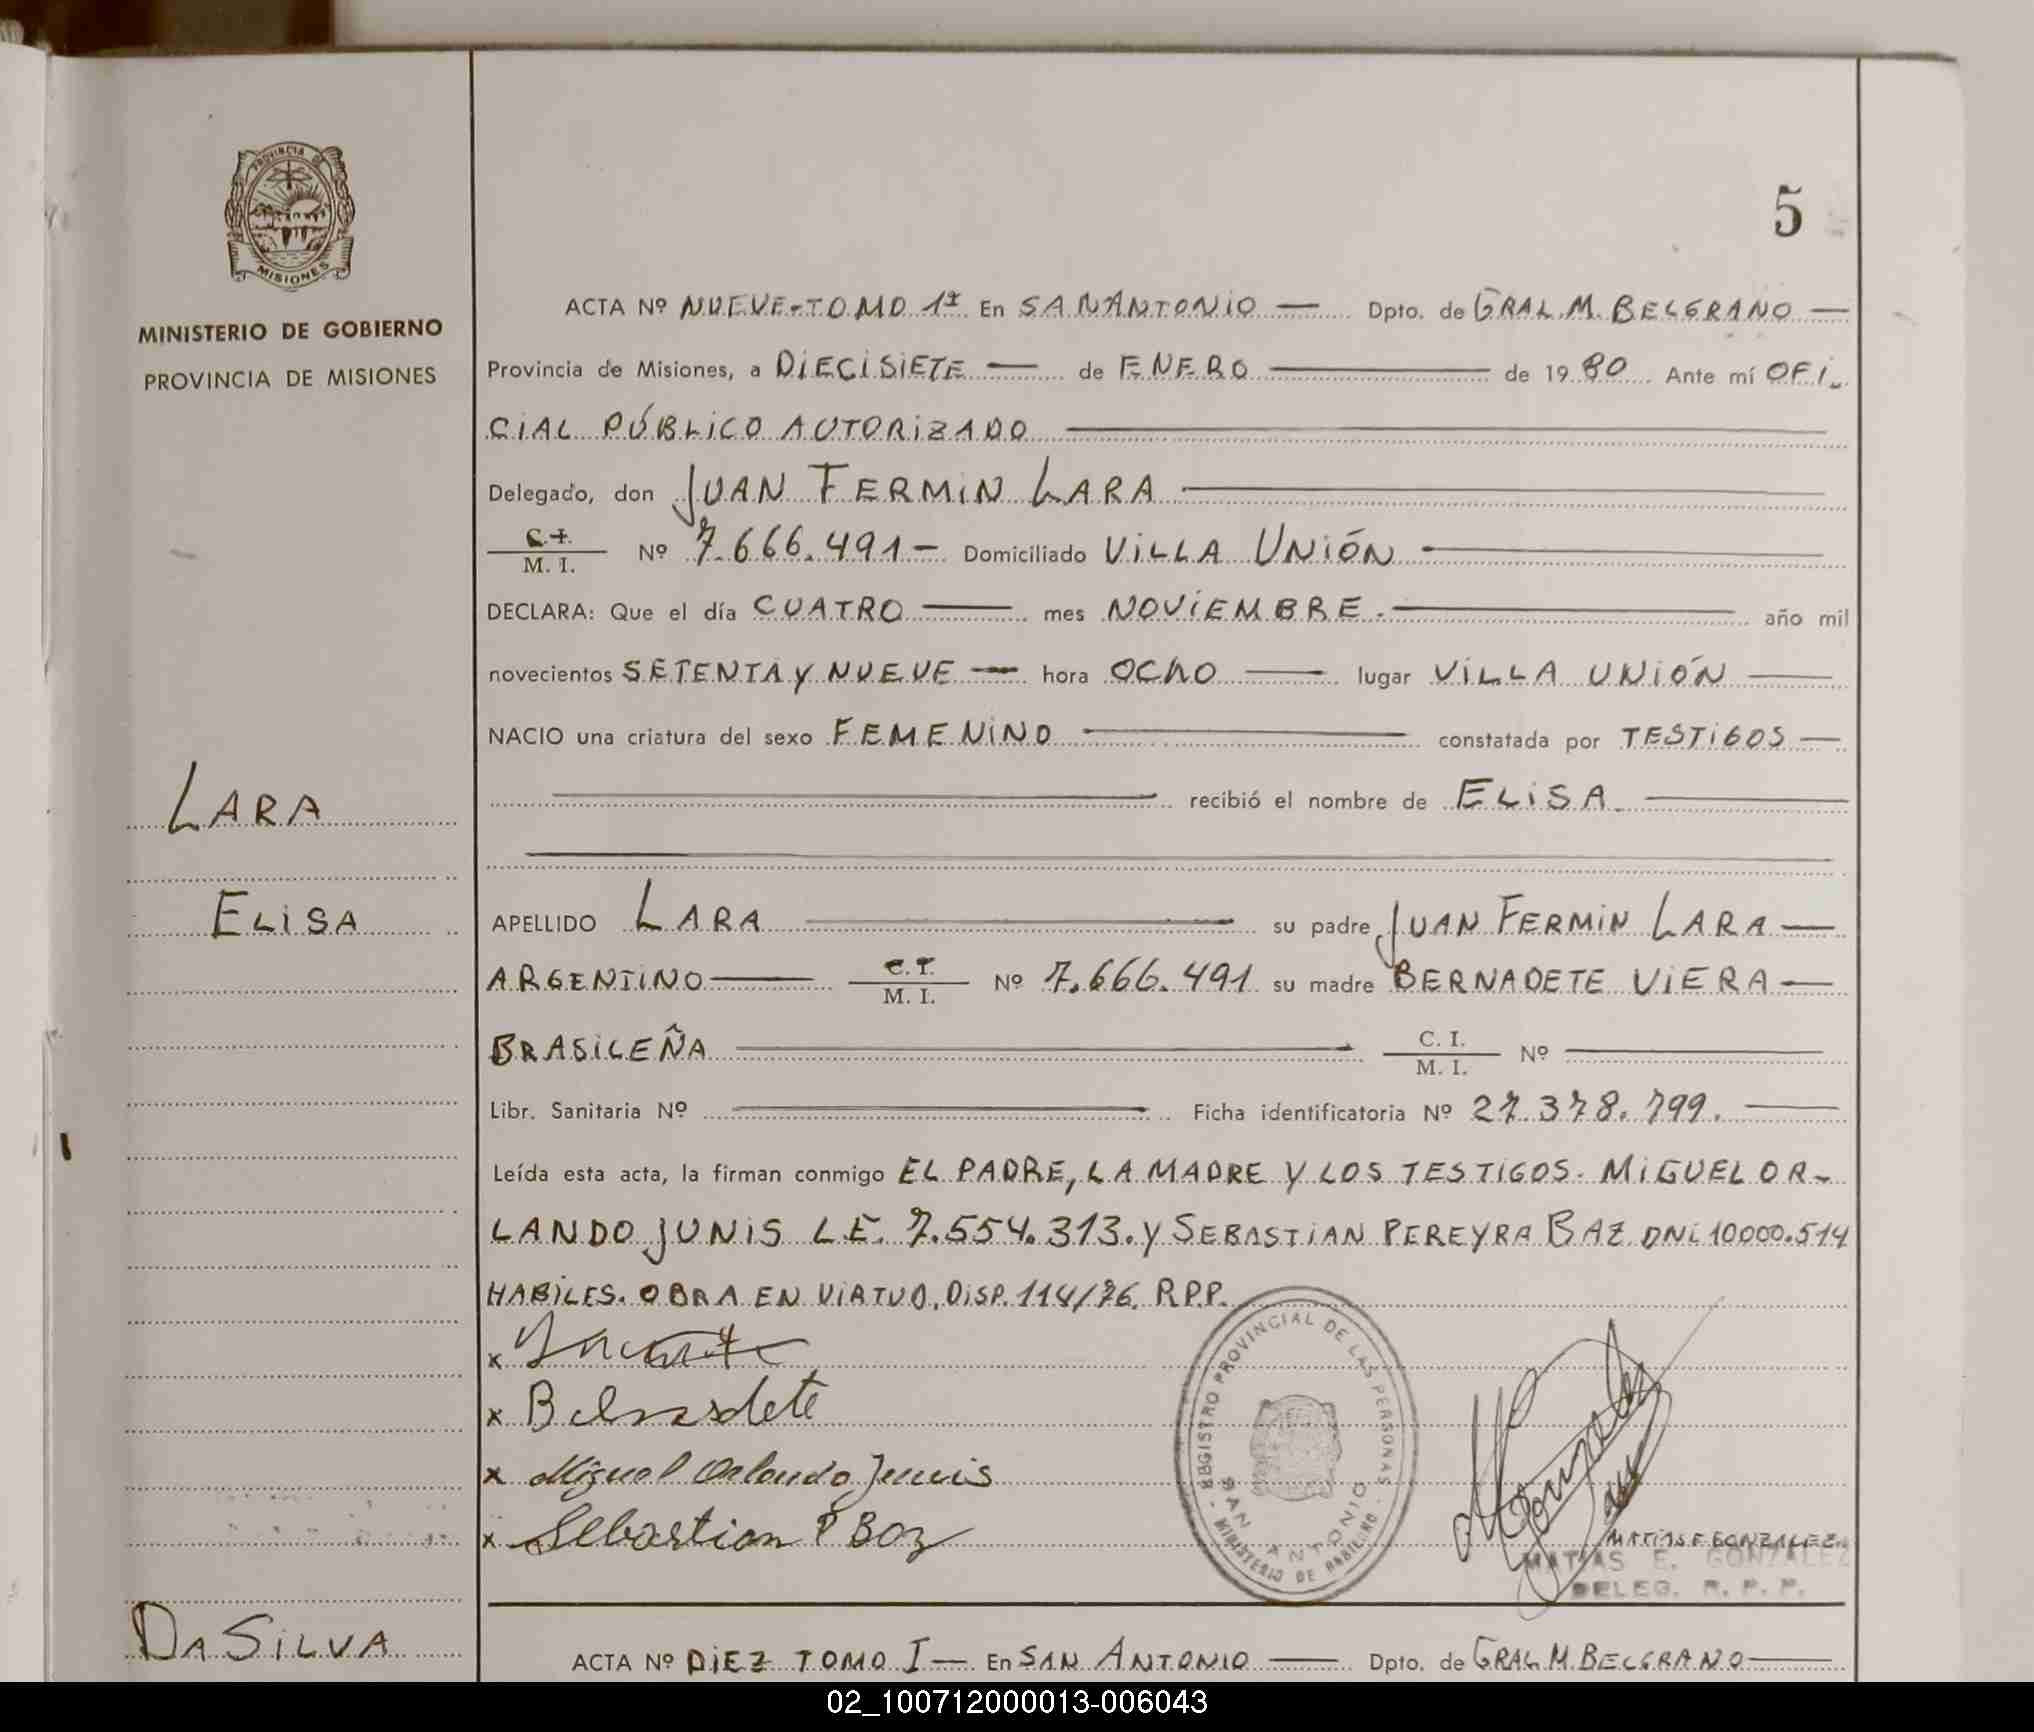 PROVINCIA DE
MISIONES
MINISTERIO DE GOBIERNO
PROVINCIA DE MISIONES
5
ACTA Nº NUEVE-TOMO 1º En SAN ANTONIO — Dpto. de GRAL. M. BELGRANO —
Provincia de Misiones, a DIECISIETE — de ENERO — de 1980 Ante mí OFI-
CIAL PÚBLICO AUTORIZADO
Delegado, don JUAN FERMIN LARA
C.I. / M. I. Nº 7.666.491- Domiciliado VILLA UNIÓN
DECLARA: Que el día CUATRO — mes NOVIEMBRE.— año mil
novecientos SETENTA Y NUEVE — hora OCHO — lugar VILLA UNIÓN
NACIO una criatura del sexo FEMENINO — constatada por TESTIGOS —
LARA
recibió el nombre de ELISA.
ELISA
APELLIDO LARA — su padre JUAN FERMIN LARA —
ARGENTINO — C.I. / M. I. Nº 7.666.491 su madre BERNADETE VIERA —
BRASILEÑA — C. I. / M. I. Nº —
Libr. Sanitaria Nº — Ficha identificatoria Nº 27.378.799.—
Leída esta acta, la firman conmigo EL PADRE, LA MADRE Y LOS TESTIGOS. MIGUEL OR-
LANDO JUNIS L.E. 7.554.313. Y SEBASTIAN PEREYRA BAZ DNI 10000.514
HABILES. OBRA EN VIRTUD. DISP. 114/76. R.P.P.
x
x Bernadete
x Miguel Orlando Junis
x Sebastian P Boz
REGISTRO PROVINCIAL DE LAS PERSONAS
SAN ANTONIO
MINISTERIO DE GOBIERNO
MATIAS E GONZALEZ
MATIAS E. GONZALEZ
DELEG. R. P. P.
DA SILVA
ACTA Nº DIEZ TOMO I — En SAN ANTONIO — Dpto. de GRAL M. BELGRANO —
02_100712000013-006043